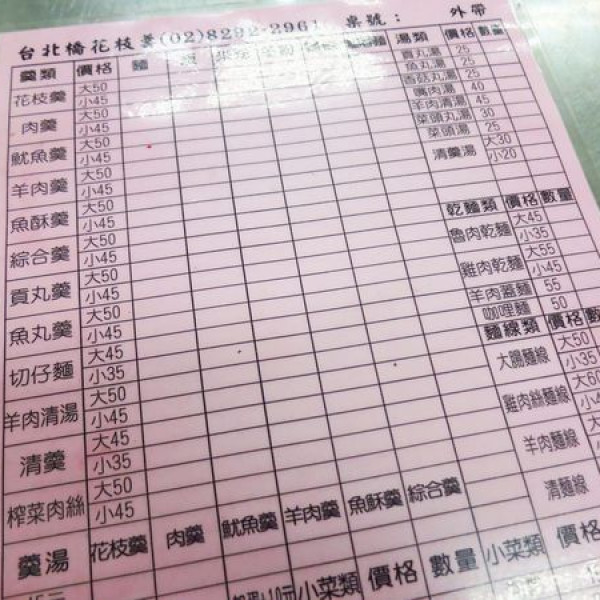 台北橋花枝羹(02)8292-2961 票號： 外帶
羹類 價格 麵 湯類 價格 數量
花枝羹 大50 小45
肉羹 大50 小45
魷魚羹 大50 小45
羊肉羹 大50 小45
魚酥羹 大50 小45
綜合羹 大50 小45
貢丸羹 大50 小45
魚丸羹 大50 小45
切仔麵 大45 小35
羊肉清湯 大50 小45
清羹 大45 小35
榨菜肉絲 大50 小45
羹湯 花枝羹 肉羹 魷魚羹 羊肉羹 魚酥羹 綜合羹
貢丸湯 25
魚丸湯 25
香菇丸湯 25
嘴肉湯 40
羊肉清湯 45
菜頭丸湯 30
菜頭湯 25
清羹湯 大30 小20
乾麵類 價格 數量
魯肉乾麵 大45 小35
雞肉乾麵 大55 小45
羊肉蓋麵 55
咖哩麵 50
麵線類 價格 數
大腸麵線 大50 小35
雞肉絲麵線 大60 小45
羊肉麵線
清麵線
+10元 小菜類 價格 數量 小菜類 價格